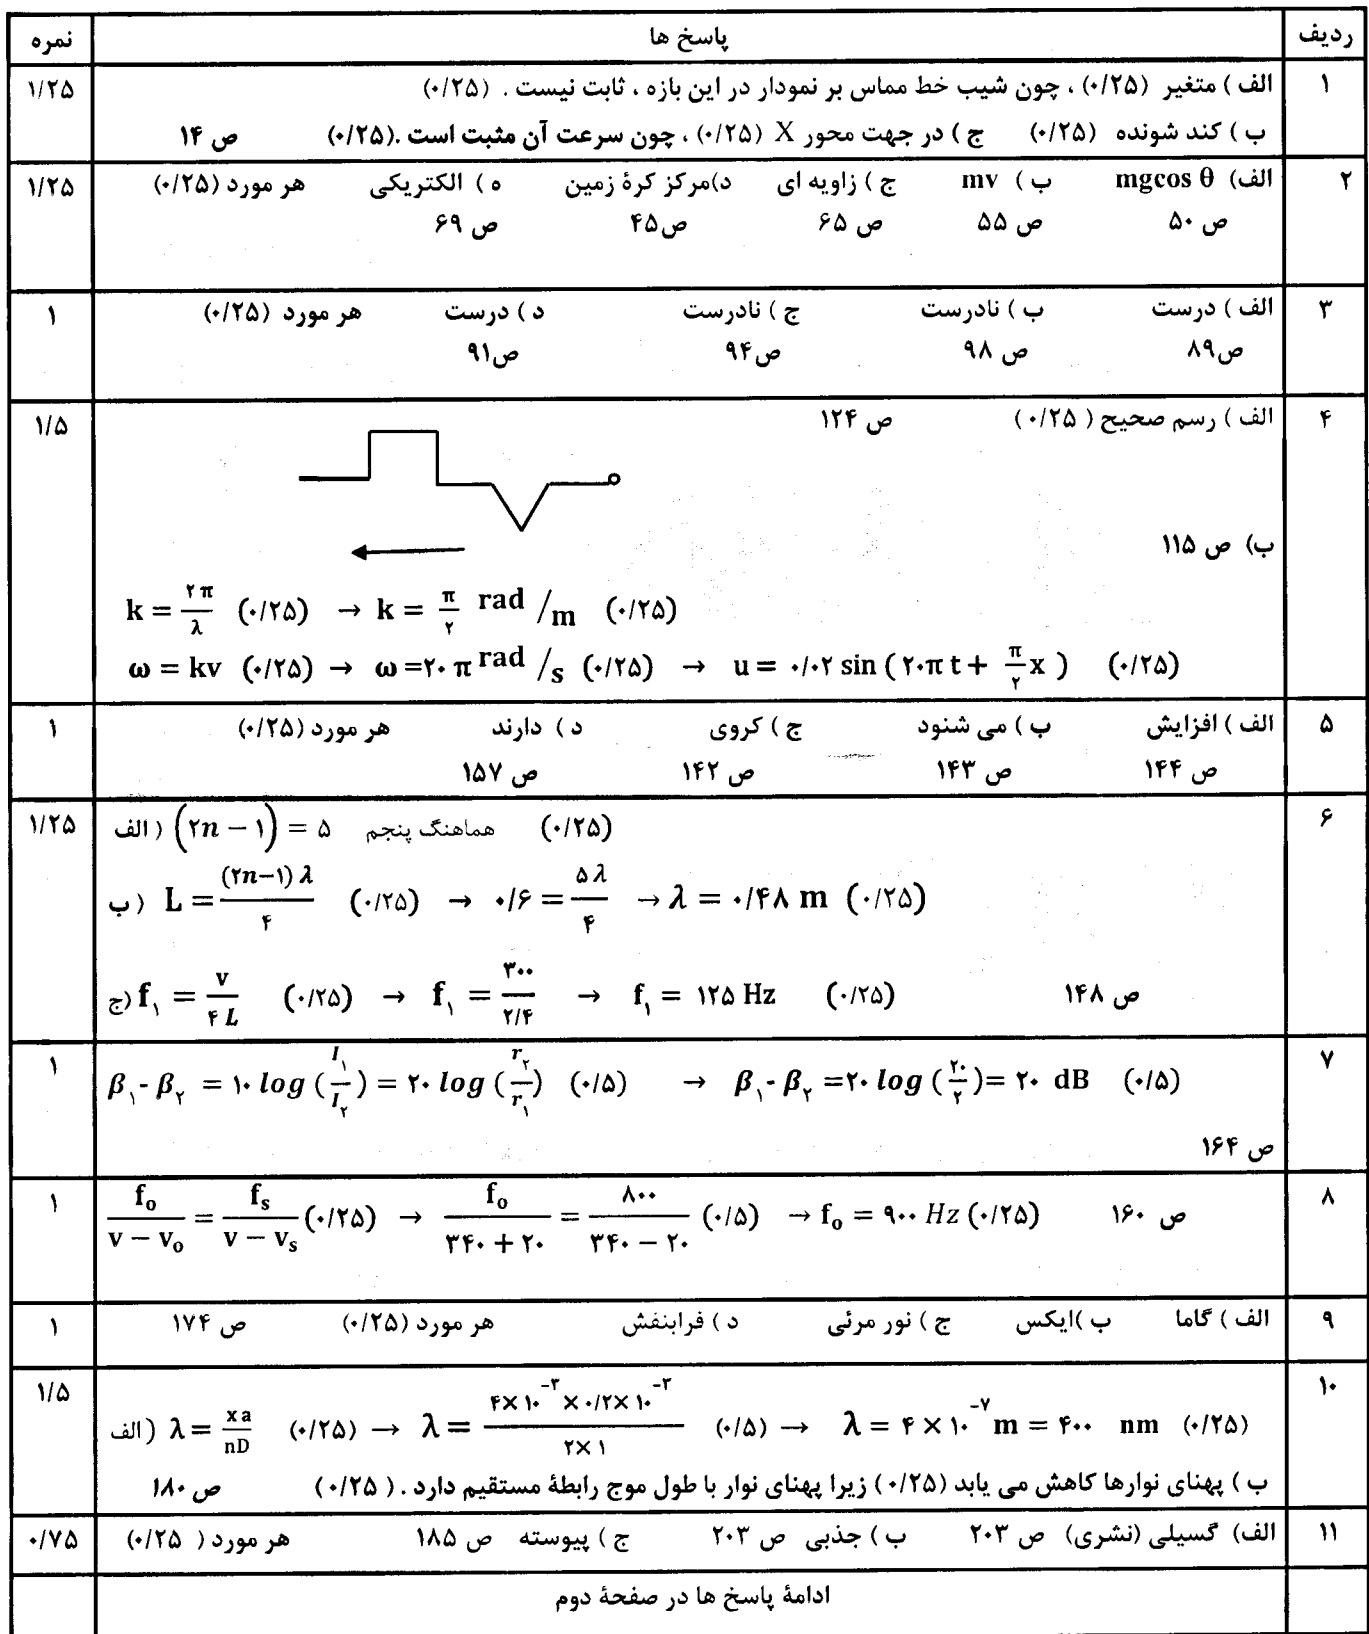 ردیف پاسخ ها نمره
۱ الف ) متغیر (۰/۲۵) ، چون شیب خط مماس بر نمودار در این بازه ، ثابت نیست . (۰/۲۵) ۱/۲۵
ب ) کند شونده (۰/۲۵) ج ) در جهت محور X (۰/۲۵) ، چون سرعت آن مثبت است .(۰/۲۵) ص ۱۴
۲ الف) mgcos θ ب ) mv ج ) زاویه ای د)مرکز کرۀ زمین ه ) الکتریکی هر مورد (۰/۲۵) ۱/۲۵
ص ۵۰ ص ۵۵ ص ۶۵ ص۴۵ ص ۶۹
۳ الف ) درست ب ) نادرست ج ) نادرست د ) درست هر مورد (۰/۲۵) ۱
ص۸۹ ص ۹۸ ص۹۴ ص۹۱
۴ الف ) رسم صحیح ( ۰/۲۵) ص ۱۲۴ ۱/۵
ب) ص ۱۱۵
k = ۲π/λ (۰/۲۵) → k = π/۲ rad /m (۰/۲۵)
ω = kv (۰/۲۵) → ω =۲۰ π rad /s (۰/۲۵) → u = ۰/۰۲ sin ( ۲۰π t + π/۲ x ) (۰/۲۵)
۵ الف ) افزایش ب ) می شنود ج ) کروی د ) دارند هر مورد (۰/۲۵) ۱
ص ۱۴۴ ص ۱۴۳ ص ۱۴۲ ص ۱۵۷
۶ الف ) (۲n − ۱) = ۵ هماهنگ پنجم (۰/۲۵) ۱/۲۵
ب ) L = (۲n−۱) λ/۴ (۰/۲۵) → ۰/۶ = ۵ λ/۴ → λ = ۰/۴۸ m (۰/۲۵)
ج) f₁ = v/۴ L (۰/۲۵) → f₁ = ۳۰۰/۲/۴ → f₁ = ۱۲۵ Hz (۰/۲۵) ص ۱۴۸
۷ β₁- β₂ = ۱۰ log (I₁/I₂) = ۲۰ log (r₂/r₁) (۰/۵) → β₁- β₂ =۲۰ log (۲۰/۲)= ۲۰ dB (۰/۵) ۱
ص ۱۶۴
۸ f₀/v − v₀ = fₛ/v − vₛ (۰/۲۵) → f₀/۳۴۰ + ۲۰ = ۸۰۰/۳۴۰ − ۲۰ (۰/۵) → f₀ = ۹۰۰ Hz (۰/۲۵) ص ۱۶۰ ۱
۹ الف ) گاما ب )ایکس ج ) نور مرئی د ) فرابنفش هر مورد (۰/۲۵) ص ۱۷۴ ۱
۱۰ الف ) λ = xa/nD (۰/۲۵) → λ = ۴×۱۰⁻³ ×۰/۲×۱۰⁻³/۲×۱ (۰/۵) → λ = ۴ × ۱۰⁻⁷ m = ۴۰۰ nm (۰/۲۵) ۱/۵
ب ) پهنای نوارها کاهش می یابد (۰/۲۵) زیرا پهنای نوار با طول موج رابطۀ مستقیم دارد . ( ۰/۲۵) ص ۱۸۰
۱۱ الف) گسیلی (نشری) ص ۲۰۳ ب ) جذبی ص ۲۰۳ ج ) پیوسته ص ۱۸۵ هر مورد ( ۰/۲۵) ۰/۷۵
ادامۀ پاسخ ها در صفحۀ دوم